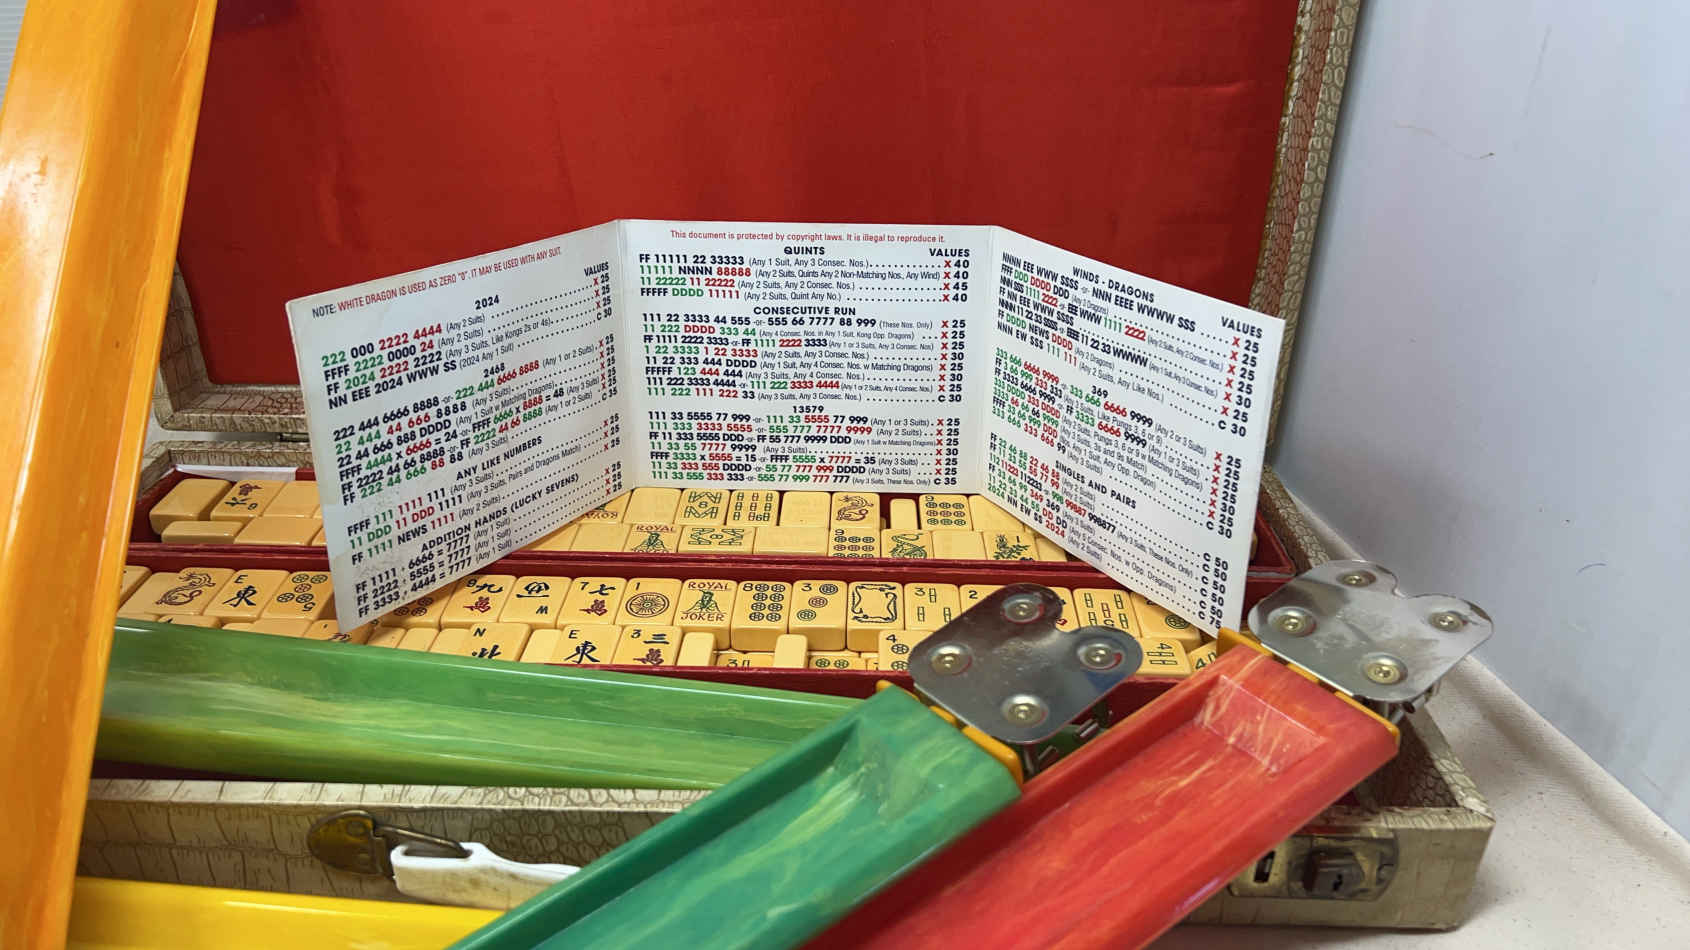 NOTE: WHITE DRAGON IS USED AS ZERO "0". IT MAY BE USED WITH ANY SUIT.
VALUES
2024
222 000 2222 4444 (Any 2 Suits) X 25
FFFF 2222 0000 24 (Any 2 Suits) X 25
FF 2024 2222 2222 (Any 3 Suits, Like Kongs 2s or 4s) X 25
NN EEE 2024 WWW SS (2024 Any 1 Suit) C 30
2468
222 444 6666 8888 -or- 222 444 6666 8888 (Any 1 or 2 Suits) X 25
22 444 44 666 8888 (Any 3 Suits) X 25
22 44 666 888 DDDD (Any 1 Suit w Matching Dragons) X 25
FFFF 4444 x 6666 = 24 -or- FFFF 6666 x 8888 = 48 (Any 3 Suits)
FF 2222 44 66 8888 -or- FF 2222 44 66 8888 (Any 1 or 2 Suits)
FF 222 44 666 88 88 (Any 3 Suits) C 35
ANY LIKE NUMBERS
FFFF 111 1111 111 (Any 3 Suits) X 25
11 DDD 11 DDD 1111 (Any 3 Suits, Pairs and Dragons Match) X 25
FF 1111 NEWS 1111 (Any 2 Suits) X 25
ADDITION HANDS (LUCKY SEVENS)
FF 1111 + 6666 = 7777 (Any 1 Suit) X 25
FF 2222 + 5555 = 7777 (Any 1 Suit) X 25
FF 3333 + 4444 = 7777 (Any 1 Suit) X 25
This document is protected by copyright laws. It is illegal to reproduce it.
QUINTS VALUES
FF 11111 22 33333 (Any 1 Suit, Any 3 Consec. Nos.) X 40
11111 NNNN 88888 (Any 2 Suits, Quints Any 2 Non-Matching Nos., Any Wind) X 40
11 22222 11 22222 (Any 2 Suits, Any 2 Consec. Nos.) X 45
FFFFF DDDD 11111 (Any 2 Suits, Quint Any No.) X 40
CONSECUTIVE RUN
111 22 3333 44 555 -or- 555 66 7777 88 999 (These Nos. Only) X 25
11 222 DDDD 333 44 (Any 4 Consec. Nos. in Any 1 Suit, Kong Opp. Dragons) X 25
FF 1111 2222 3333 -or- FF 1111 2222 3333 (Any 1 or 3 Suits, Any 3 Consec. Nos) X 25
1 22 3333 1 22 3333 (Any 2 Suits, Any 3 Consec. Nos.) X 30
11 22 333 444 DDDD (Any 1 Suit, Any 4 Consec. Nos. w Matching Dragons) X 25
FFFFF 123 444 444 (Any 3 Suits, Any 4 Consec. Nos.) X 30
111 222 3333 4444 -or- 111 222 3333 4444 (Any 1 or 2 Suits, Any 4 Consec. Nos.) X 25
111 222 111 222 33 (Any 3 Suits, Any 3 Consec. Nos.) C 30
13579
111 33 5555 77 999 -or- 111 33 5555 77 999 (Any 1 or 3 Suits) X 25
111 333 3333 5555 -or- 555 777 7777 9999 (Any 2 Suits) X 25
FF 11 333 5555 DDD -or- FF 55 777 9999 DDD (Any 1 Suit w Matching Dragons) X 25
11 33 55 7777 9999 (Any 3 Suits) X 30
FFFF 3333 x 5555 = 15 -or- FFFF 5555 x 7777 = 35 (Any 3 Suits) X 25
11 33 333 555 DDDD -or- 55 77 777 999 DDDD (Any 3 Suits) X 25
111 33 555 333 333 -or- 555 77 999 777 777 (Any 3 Suits, These Nos. Only) C 35
WINDS - DRAGONS VALUES
NNNN EEE WWW SSSS -or- NNN EEEE WWWW SSS X 25
FFFF DDD DDDD DDD (Any 3 Dragons) X 25
NNN SSS 1111 2222 -or- EEE WWW 1111 2222 (Any 2 Suits, Any 2 Consec. Nos.) X 25
FF NN EEE WWW SSSS X 25
FF DDDD NEWS DDDD (Any 2 Dragons)
NNN EW SSS 111 111 (Any 2 Suits, Any Like Nos.) C 30
369
333 666 6666 9999 -or- 333 666 6666 9999 (Any 2 or 3 Suits) X 25
FF 3333 6666 9999 -or- FF 3333 6666 9999 (Any 1 or 2 Suits)
333 666 333 666 99 (Any 3 Suits) C 30
SINGLES AND PAIRS
FF 22 46 88 22 46 88 (Any 2 Suits) C 50
2024 NN EW SS 2024 (Any 2 Suits) C 75
ROYAL
ROYAL
JOKER
E 東
5
9 九
W
7 七
1
8
3
3
2
N 北
E 東
3 三
4
9
9